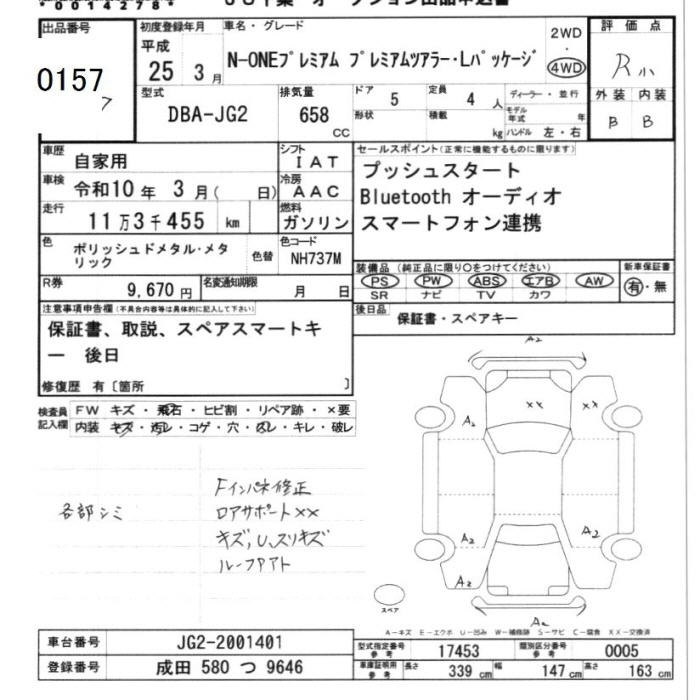 *0014278*
出品番号
0157
初度登録年月
平成
25 3月
車名・グレード
N-ONEプレミアム プレミアムツアラー・Lパッケージ
2WD
・
4WD
評価点
R小
外装 内装
B B
型式
DBA-JG2
排気量
658
cc
ドア
5
定員
4 人
形状
積載
kg
ディーラー・並行
モデル年式 年
ハンドル 左・右
車歴
自家用
シフト
IAT
車検
令和10年 3月( 日)
冷房
AAC
走行
11万3千455 km
燃料
ガソリン
セールスポイント(正常に機能するものに限ります)
プッシュスタート
Bluetooth オーディオ
スマートフォン連携
色
ポリッシュドメタル・メタリック
色替
色コード
NH737M
R券
9,670円
名変通知期限
月 日
装備品(純正品に限り○をつけてください)
PS PW ABS エアB AW
SR ナビ TV カワ
新車保証書
有・無
後日品
保証書・スペアキー
注意事項申告欄(不具合内容等は具体的に記入して下さい)
保証書、取説、スペアスマートキ
ー 後日
修復歴 有〔箇所 〕
検査員記入欄
FW キズ・飛石・ヒビ割・リペア跡・×要
内装 キズ・汚レ・コゲ・穴・スレ・キレ・破レ
各部シミ
Fインパネ修正
ロアサポート××
キズ,U,スリキズ
ルーフPアト
A2
××
××
A2
A2
A2
A2
A2
スペア
A-キズ E-エクボ U-凹み W-補修跡 S-サビ C-腐食 XX-交換済
車台番号
JG2-2001401
登録番号
成田 580 つ 9646
型式指定番号
参考
17453
類別区分番号
参考
0005
車庫証明用
参考
長さ
339 cm
幅
147 cm
高さ
163 cm